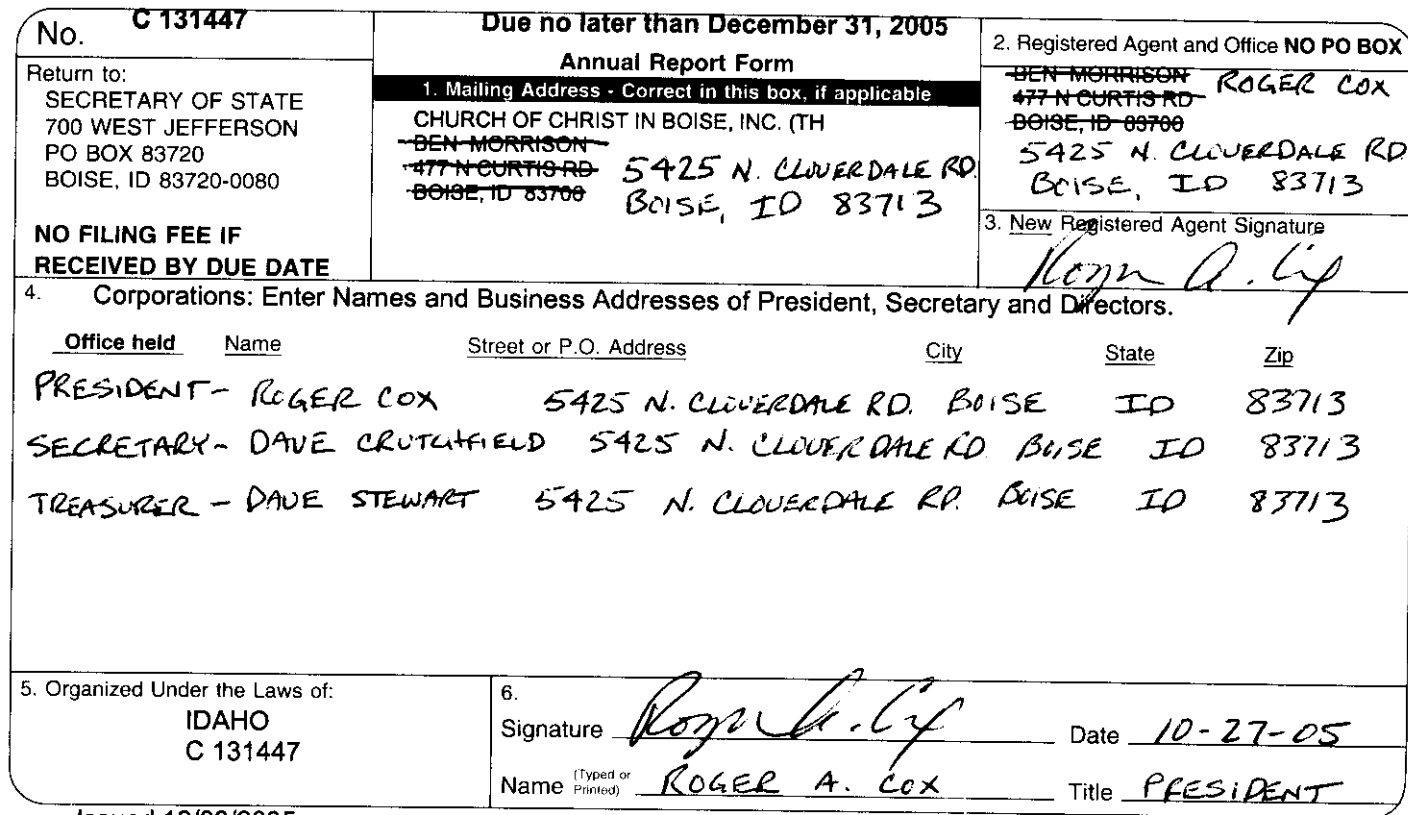 No. C 131447
Return to:
SECRETARY OF STATE
700 WEST JEFFERSON
PO BOX 83720
BOISE, ID 83720-0080
NO FILING FEE IF
RECEIVED BY DUE DATE
Due no later than December 31, 2005
Annual Report Form
1. Mailing Address - Correct in this box, if applicable
CHURCH OF CHRIST IN BOISE, INC. (TH
BEN MORRISON
477 N CURTIS RD 5425 N. CLOVERDALE RD.
BOISE, ID 83706 BOISE, ID 83713
2. Registered Agent and Office NO PO BOX
BEN MORRISON ROGER COX
477 N CURTIS RD
BOISE, ID 83706
5425 N. CLOVERDALE RD
BOISE, ID 83713
3. New Registered Agent Signature
Roger A. Cox
4. Corporations: Enter Names and Business Addresses of President, Secretary and Directors.
Office held Name Street or P.O. Address City State Zip
PRESIDENT - ROGER COX 5425 N. CLOVERDALE RD. BOISE ID 83713
SECRETARY - DAVE CRUTCHFIELD 5425 N. CLOVERDALE RD. BOISE ID 83713
TREASURER - DAVE STEWART 5425 N. CLOVERDALE RD. BOISE ID 83713
5. Organized Under the Laws of:
IDAHO
C 131447
6.
Signature Roger A. Cox Date 10-27-05
Name (Typed or Printed) ROGER A. COX Title PRESIDENT